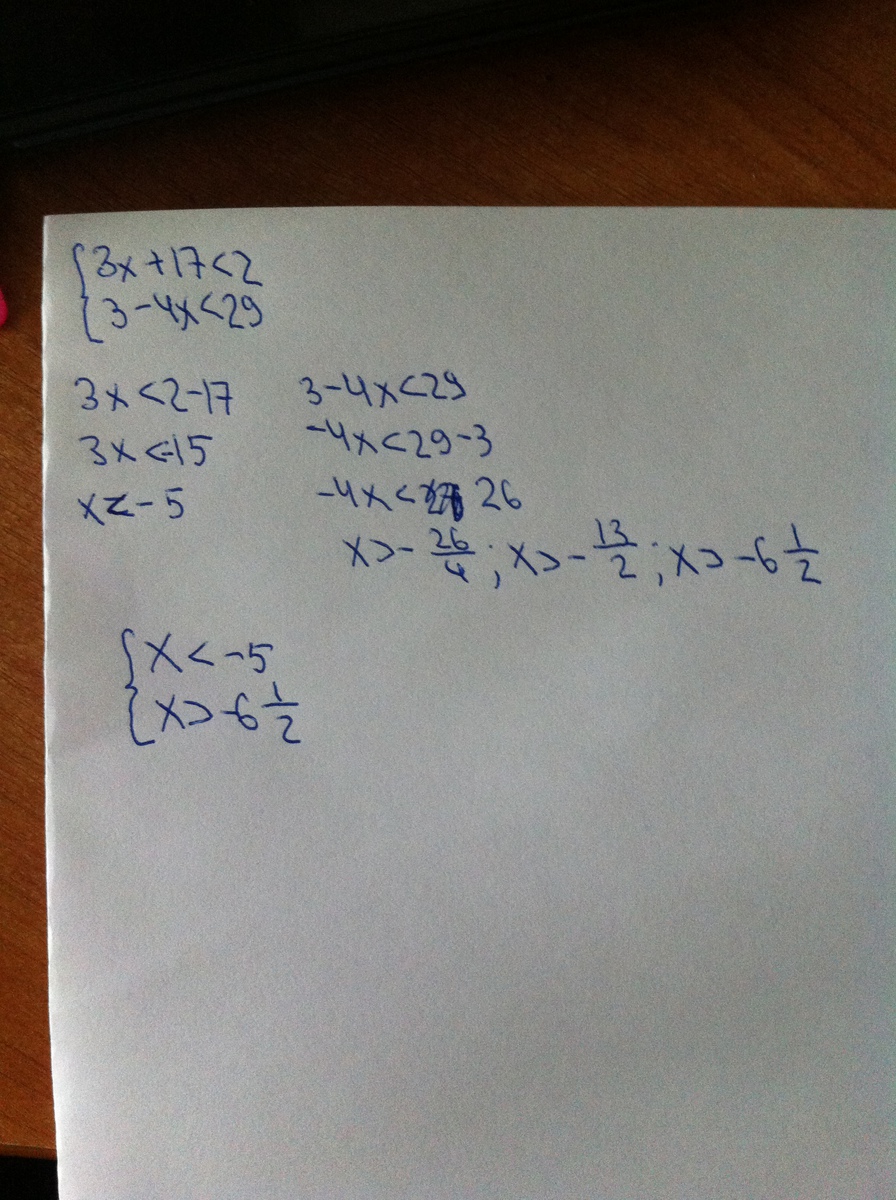 {3x+17<2
{3-4x<29
3x<2-17
3x<-15
x<-5
3-4x<29
-4x<29-3
-4x< 26
x>-26/4; x>-13/2; x>-6 1/2
{x<-5
{x>-6 1/2